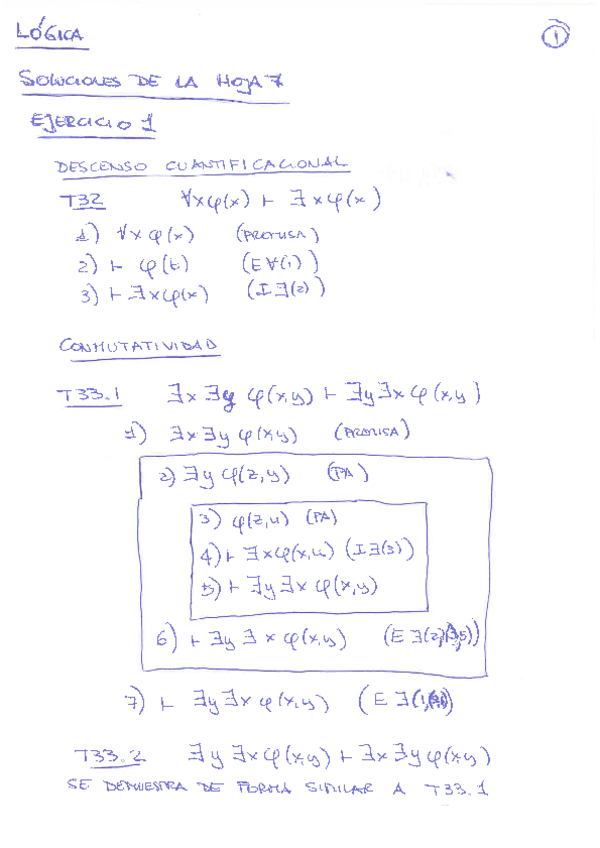 LÓGICA
1
SOLUCIONES DE LA HOJA 7
EJERCICIO 1
DESCENSO CUANTIFICACIONAL
T32 ∀xφ(x) ⊢ ∃xφ(x)
1) ∀xφ(x) (PREMISA)
2) ⊢ φ(t) (E∀(1))
3) ⊢ ∃xφ(x) (I∃(2))
CONMUTATIVIDAD
T33.1 ∃x∃y φ(x,y) ⊢ ∃y∃xφ(x,y)
1) ∃x∃yφ(x,y) (PREMISA)
2) ∃yφ(z,y) (PA)
3) φ(z,u) (PA)
4) ⊢ ∃xφ(x,u) (I∃(3))
5) ⊢ ∃y∃xφ(x,y)
6) ⊢ ∃y∃xφ(x,y) (E∃(2,3,5))
7) ⊢ ∃y∃xφ(x,y) (E∃(1,
T33.2 ∃y∃xφ(x,y) ⊢ ∃x∃yφ(x,y)
SE DEMUESTRA DE FORMA SIMILAR A T33.1